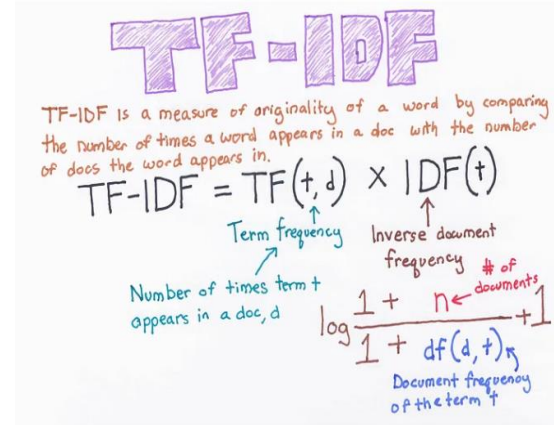 TF-IDF
TF-IDF is a measure of originality of a word by comparing
the number of times a word appears in a doc with the number
of docs the word appears in.
TF-IDF = TF(t,d) × IDF(t)
Term frequency
Inverse document
frequency
Number of times term t
appears in a doc, d
# of
documents
log 1 + n / 1 + df(d,t) + 1
Document frequency
of the term t